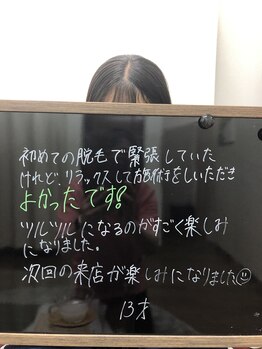 初めての脱毛で緊張していた
けれど、リラックスして施術をしいただき
よかったです!
ツルツルになるのがすごく楽しみ
になりました。
次回の来店が楽しみになりました
13才